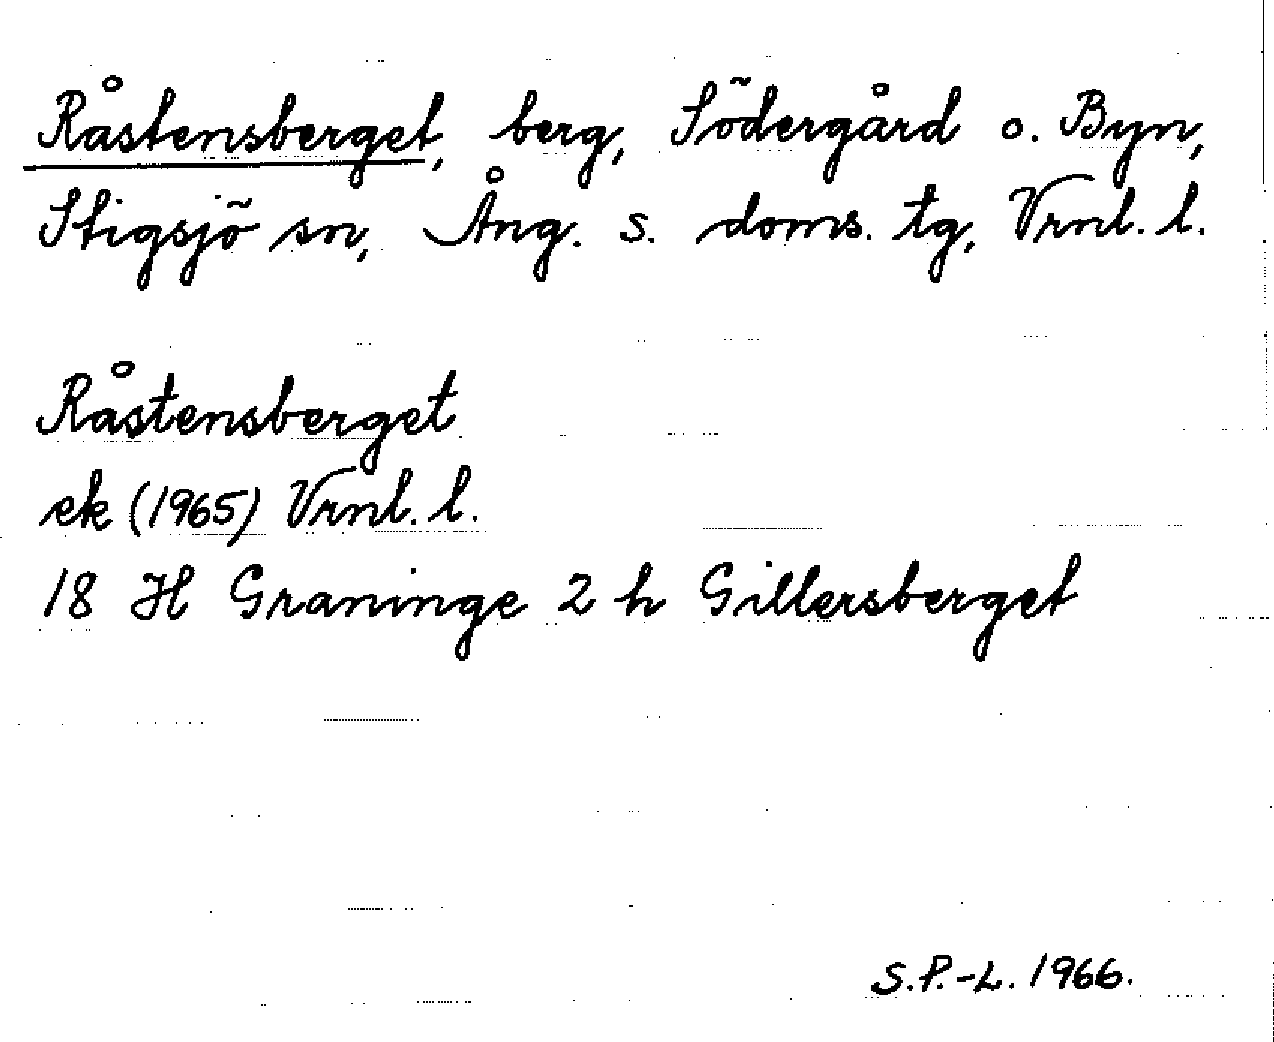 Råstensberget, berg, Södergård o. Byn,
Stigsjö sn, Ång. s. doms. tg, Vrnl. l.
Råstensberget
ek (1965) Vrnl. l.
18 H Graninge 2 h Gillersberget
S.P.-L. 1966.